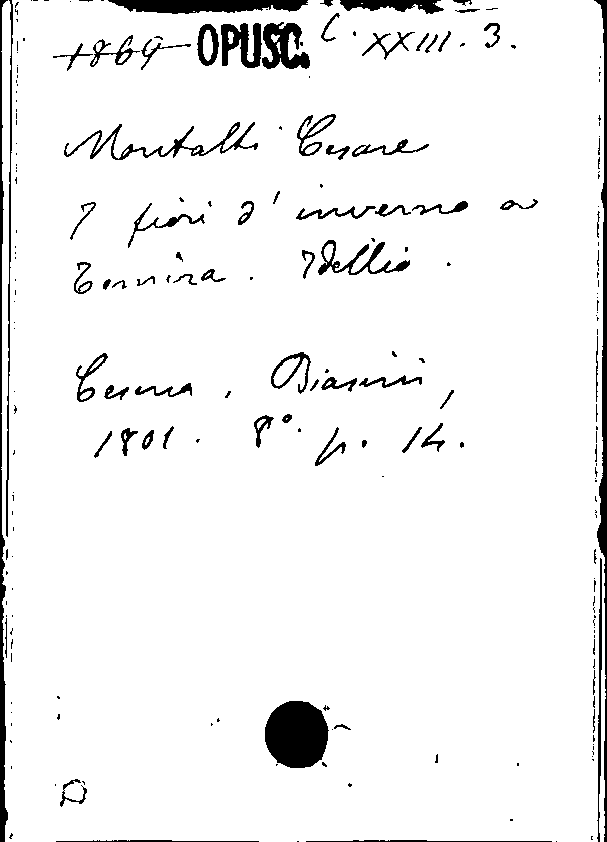 1869 OPUSC. C. XXIII. 3.
Montalti Cesare
I fiori d'inverno a
Temira. Idillio.
Cesena, Biasini,
1801. 8° p. 14.